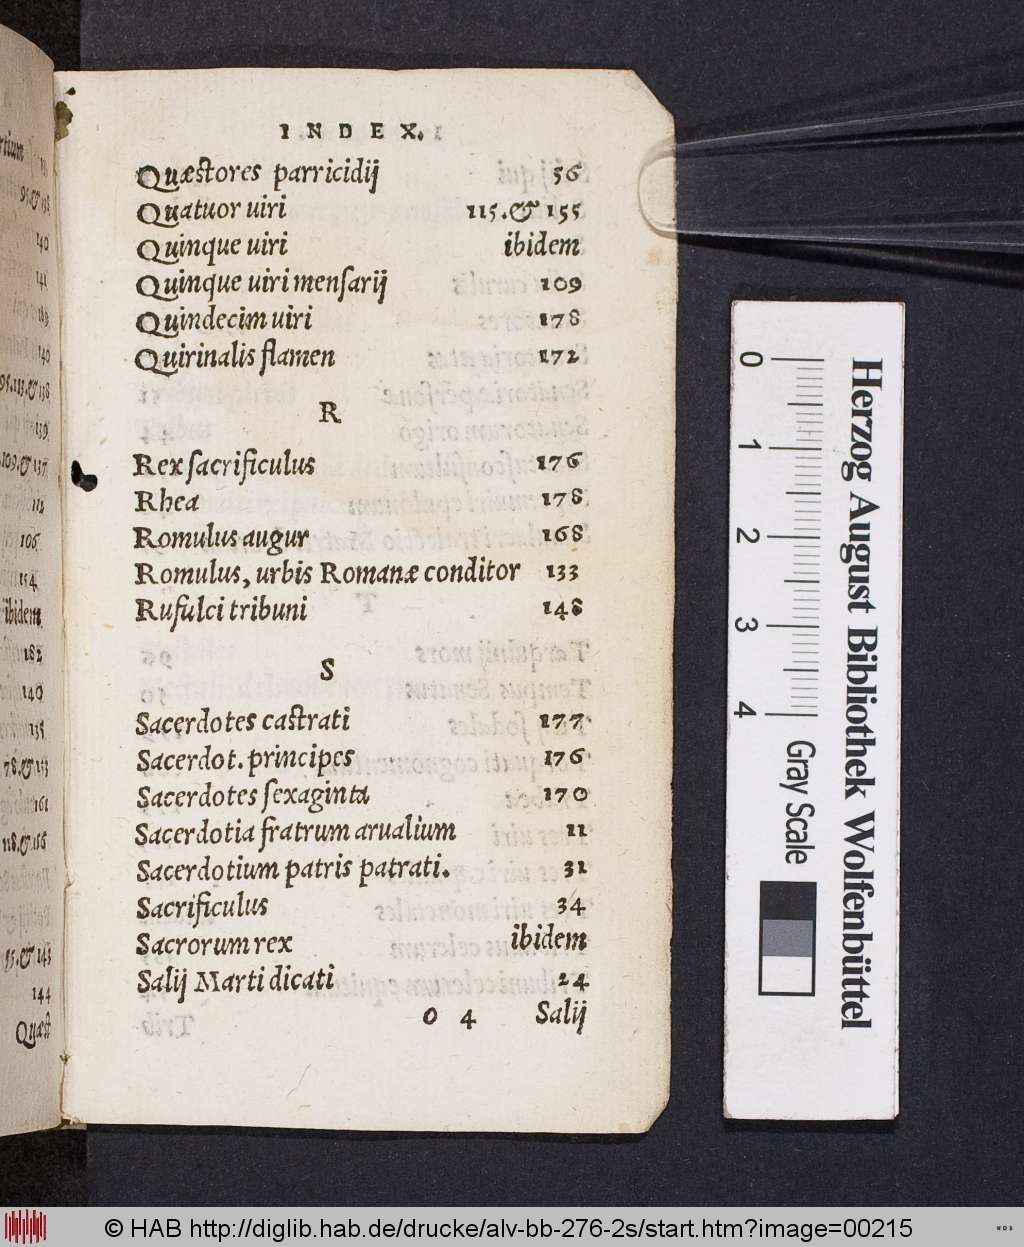 INDEX.
Quæstores parricidij 56
Quatuor uiri 115.& 155
Quinque uiri ibidem
Quinque uiri menſarij 109
Quindecim uiri 178
Quirinalis flamen 172
R
Rex ſacrificulus 176
Rhea 178
Romulus augur 168
Romulus, urbis Romanæ conditor 133
Rufulci tribuni 148
S
Sacerdotes caſtrati 177
Sacerdot. principes 176
Sacerdotes ſexaginta 170
Sacerdotia fratrum arualium 11
Sacerdotium patris patrati. 31
Sacrificulus 34
Sacrorum rex ibidem
Salij Marti dicati 24
o 4 Salij
140
141
189
140
139
112
106
154
ibidem
182
140
135
78.& 113
161
118.& 166
144
Quæſt
0 1 2 3 4
Gray Scale
Herzog August Bibliothek Wolfenbüttel
© HAB http://diglib.hab.de/drucke/alv-bb-276-2s/start.htm?image=00215